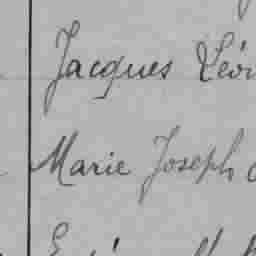 Jacques Léon
Marie Joseph